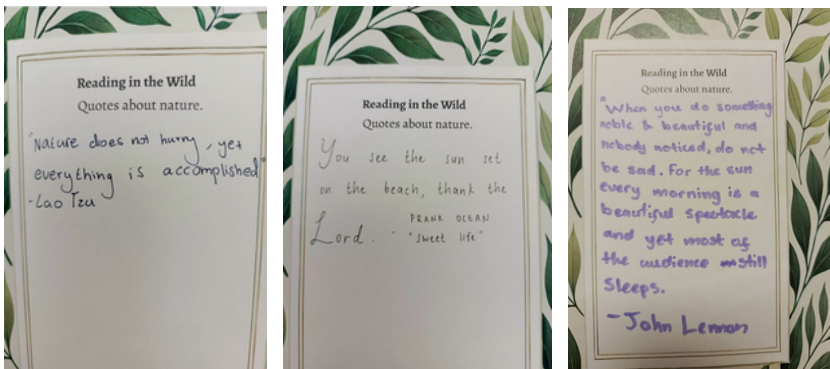 Reading in the Wild
Quotes about nature.
"Nature does not hurry, yet
everything is accomplished"
-Lao Tzu
Reading in the Wild
Quotes about nature.
You see the sun set
on the beach, thank the
Lord. "
FRANK OCEAN
"Sweet life"
Reading in the Wild
Quotes about nature.
"When you do something
noble & beautiful and
nobody noticed, do not
be sad. For the sun
every morning is a
beautiful spectacle
and yet most of
the audience still
sleeps.
-John Lennon